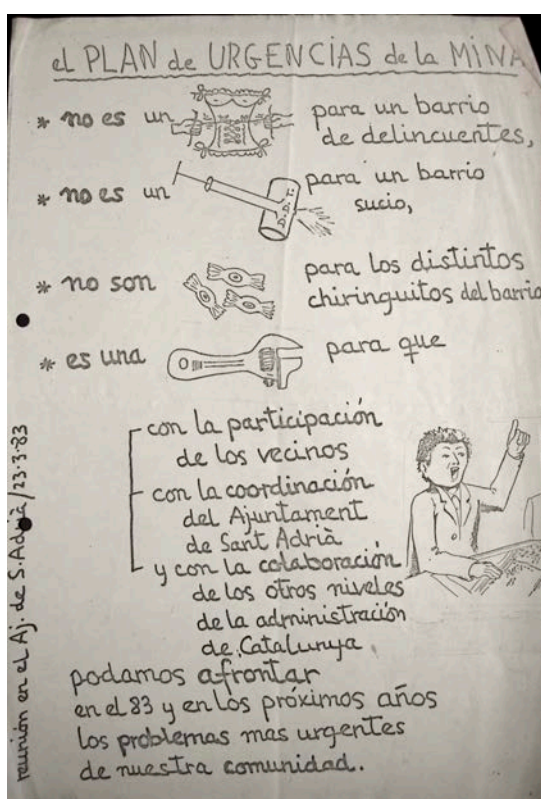 el PLAN de URGENCIAS de la MINA
* no es un para un barrio
de delincuentes,
* no es un para un barrio
sucio,
D.D.T.
* no son para los distintos
chiringuitos del barrio
* es una para que
con la participación
de los vecinos
con la coordinación
del Ajuntament
de Sant Adrià
y con la colaboración
de los otros niveles
de la administración
de Catalunya
podamos afrontar
en el 83 y en los próximos años
los problemas mas urgentes
de nuestra comunidad.
reunión en el Aj. de S. Adrià / 23.3.83